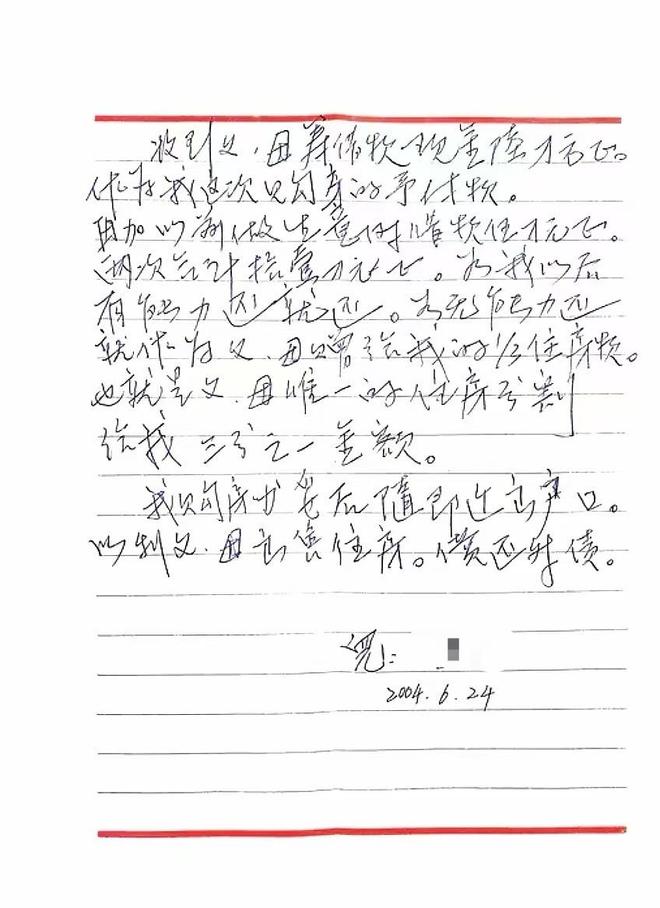 收到父.母筹借款现金陆万元正。
作为我这次只购房的予付款。
再加以前做生意时借款伍万元正。
两次合计拾壹万元正。为我以后
有能力还就还。为无能力还
就作为父.母赠给我的1/3住房款。
也就是父.母唯一的住房分割
给我三分之一金额。
我购房办完后随即迁出户口。
以利父.母出售住房。偿还外债。
儿:
2004.6.24